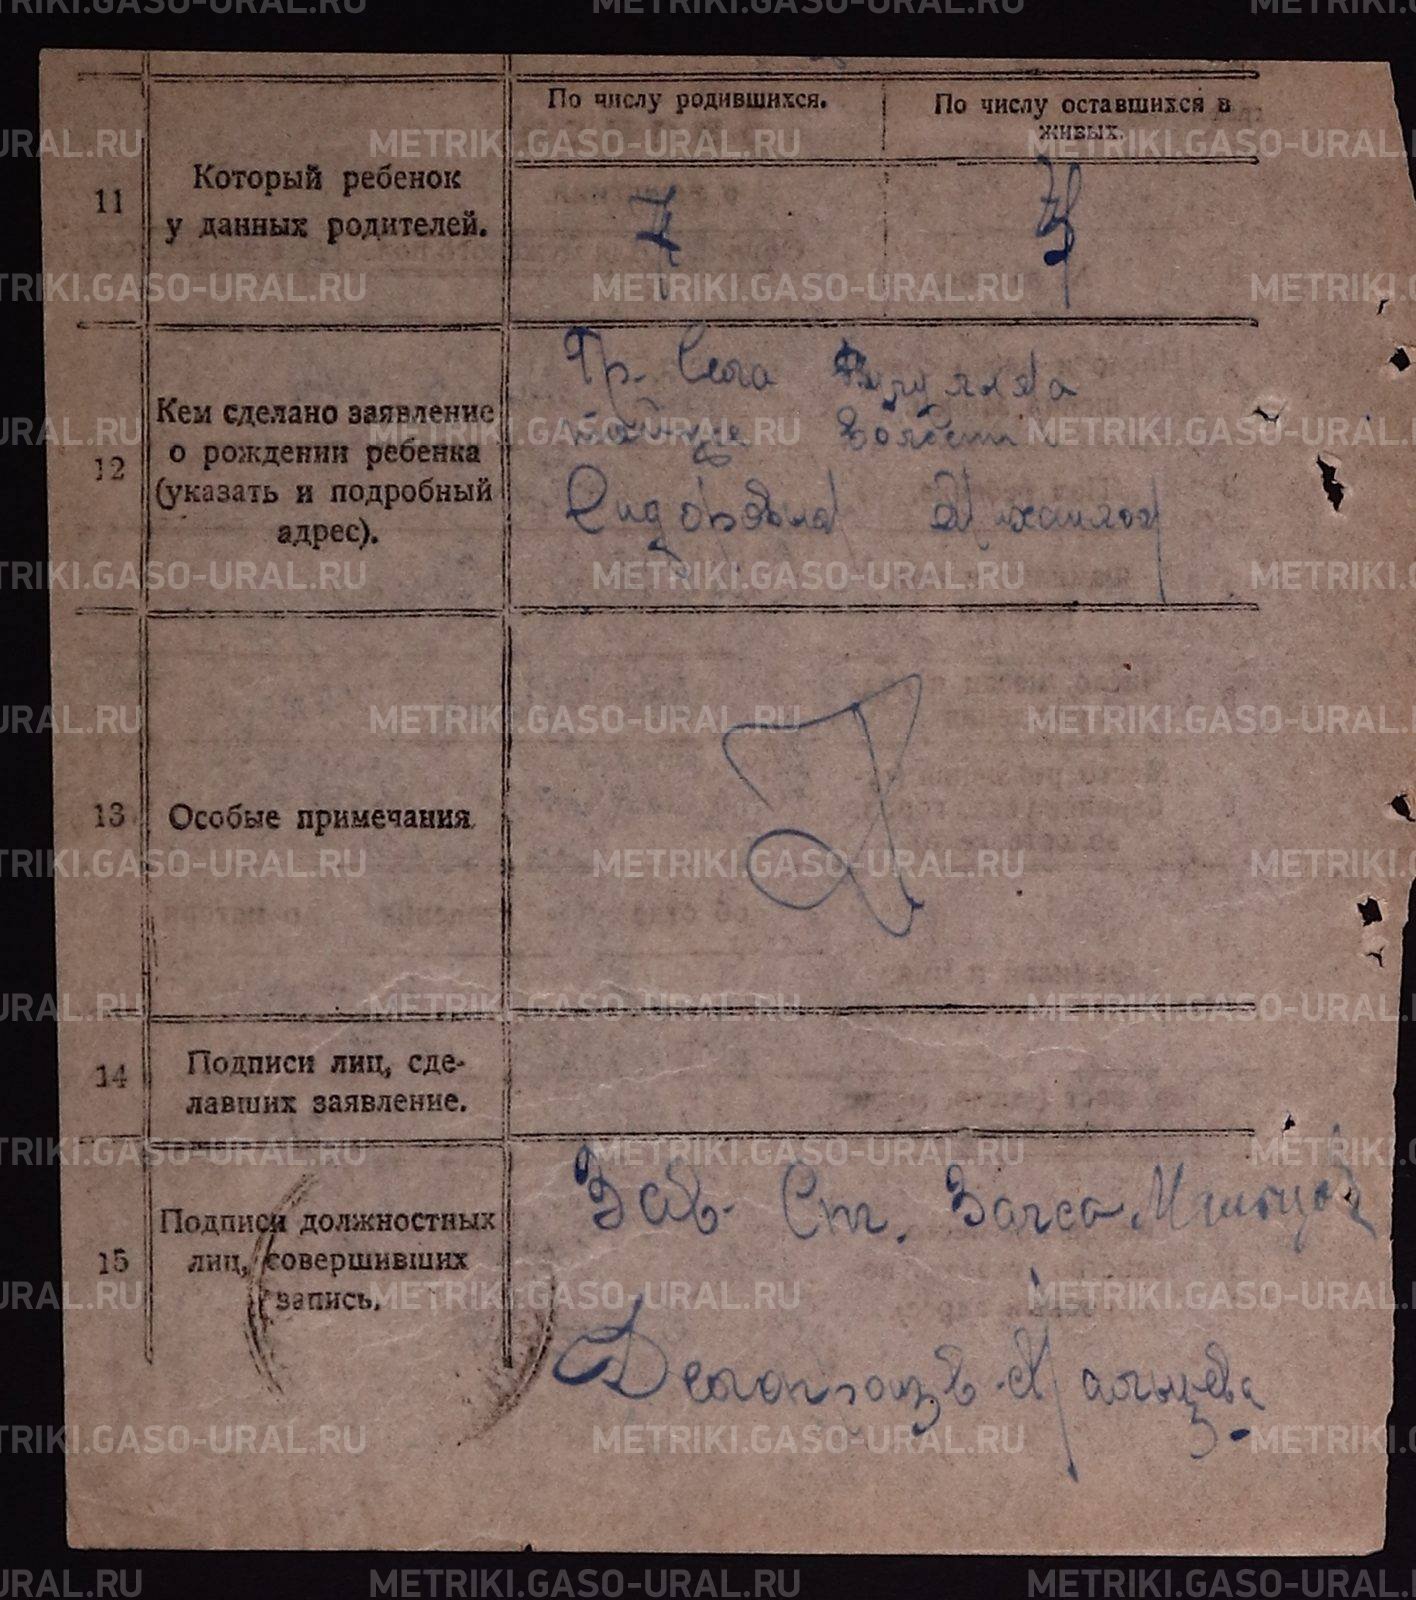 По числу родившихся.
По числу оставшихся в
живых.
11
Который ребенок
у данных родителей.
7
Гр. Села
12
Кем сделано заявление
о рождении ребенка
(указать и подробный
адрес).
тойже волости
13
Особые примечания.
14
Подписи лиц, сде-
лавших заявление.
15
Подписи должностных
лиц, совершивших
запись.
Зав. Ст. Загса
Делопроизв.
METRIKI.GASO-URAL.RU